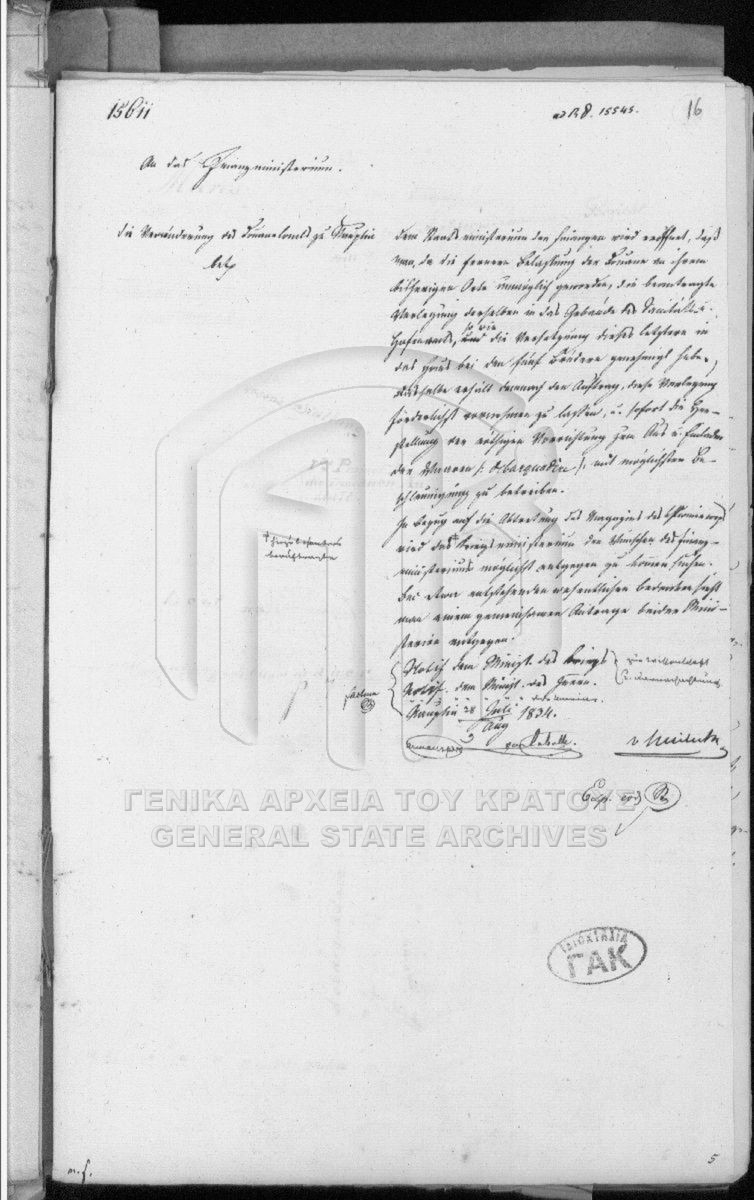 15611
ad R 8. 15545.
16
An das Finanzministerium.
die Veränderung des Douanelocals zu Nauplia
betr
Dem Staatsministerium der Finanzen wird eröffnet, daß
man, da die fernere Belassung der Douane an ihrem
bisherigen Orte unmöglich geworden, die beantragte
Verlegung derselben in das Gebäude des Sanitäts u.
Hafenamts, so wie die Versetzung dieses letztern in
das Haus bei den fünf Brüdern genehmigt habe.
Dasselbe erhält demnach den Auftrag, diese Verlegung
förderlichst vornehmen zu lassen, u. sofort die Her-
stellung der nöthigen Vorrichtung zum Aus u. Einladen
der Waaren /: /, mit möglichster Be-
schleunigung zu betreiben.
In Bezug auf die Abtretung des Magazins des
wird das Kriegsministerium den Wünschen des Finanz-
ministeriums möglichst entgegen zu kommen suchen.
Bei etwa entstehenden wesentlichen Bedenken sieht
man einem gemeinsamen Antrage beider Mini-
sterien entgegen.
Notiz dem Minist. des Kriegs
Notiz dem Minist. des Innern
Nauplia 28 Juli 1834.
Aug
Exp. eod
ΓΕΝΙΚΑ ΑΡΧΕΙΑ ΤΟΥ ΚΡΑΤΟΥΣ
GENERAL STATE ARCHIVES
ΙΔΙΟΚΤΗΣΙΑ
ΓΑΚ
m. f.
5